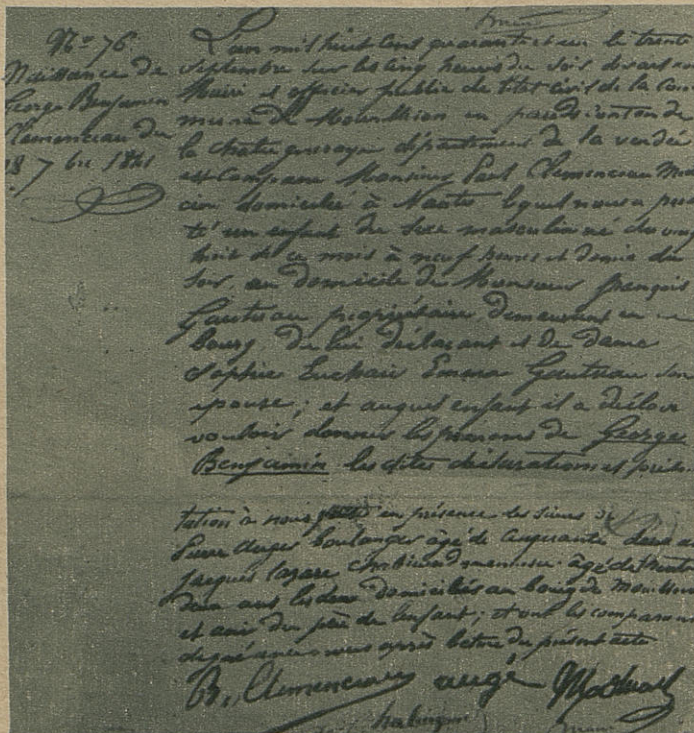 N° 76.
Naissance de
George Benjamin
Clemenceau du
28 7bre 1841
L'an mil huit cent quarante et un le trente
septembre sur les cinq heures du soir devant nous
Maire et officier public de l'état civil de la com
mune de Mouilleron en pareds canton de
la chataigneraye département de la vendée
est comparu Monsieur Paul Clemenceau Méde
cin domicilié à Nantes lequel nous a présen
té un enfant du sexe masculin né du vingt
huit de ce mois à neuf heures et demie du
soir, au domicile de Monsieur françois
Gautreau propriétaire demeurant en ce
bourg de lui déclarant et de dame
Sophie Emma Gautreau son
épouse; et auquel enfant il a déclaré
vouloir donner les prenoms de George
Benjamin les dites déclaration et présen
tation à nous en présence les sieurs
Pierre Augé boulanger âgé de cinquante deux ans
Jacques menuisier âgé de trente
deux ans les deux domiciliés au bourg de Mouilleron
et ami du père de l'enfant; et ont les comparants
signé avec nous après lecture du présent acte
B. Clemenceau augé